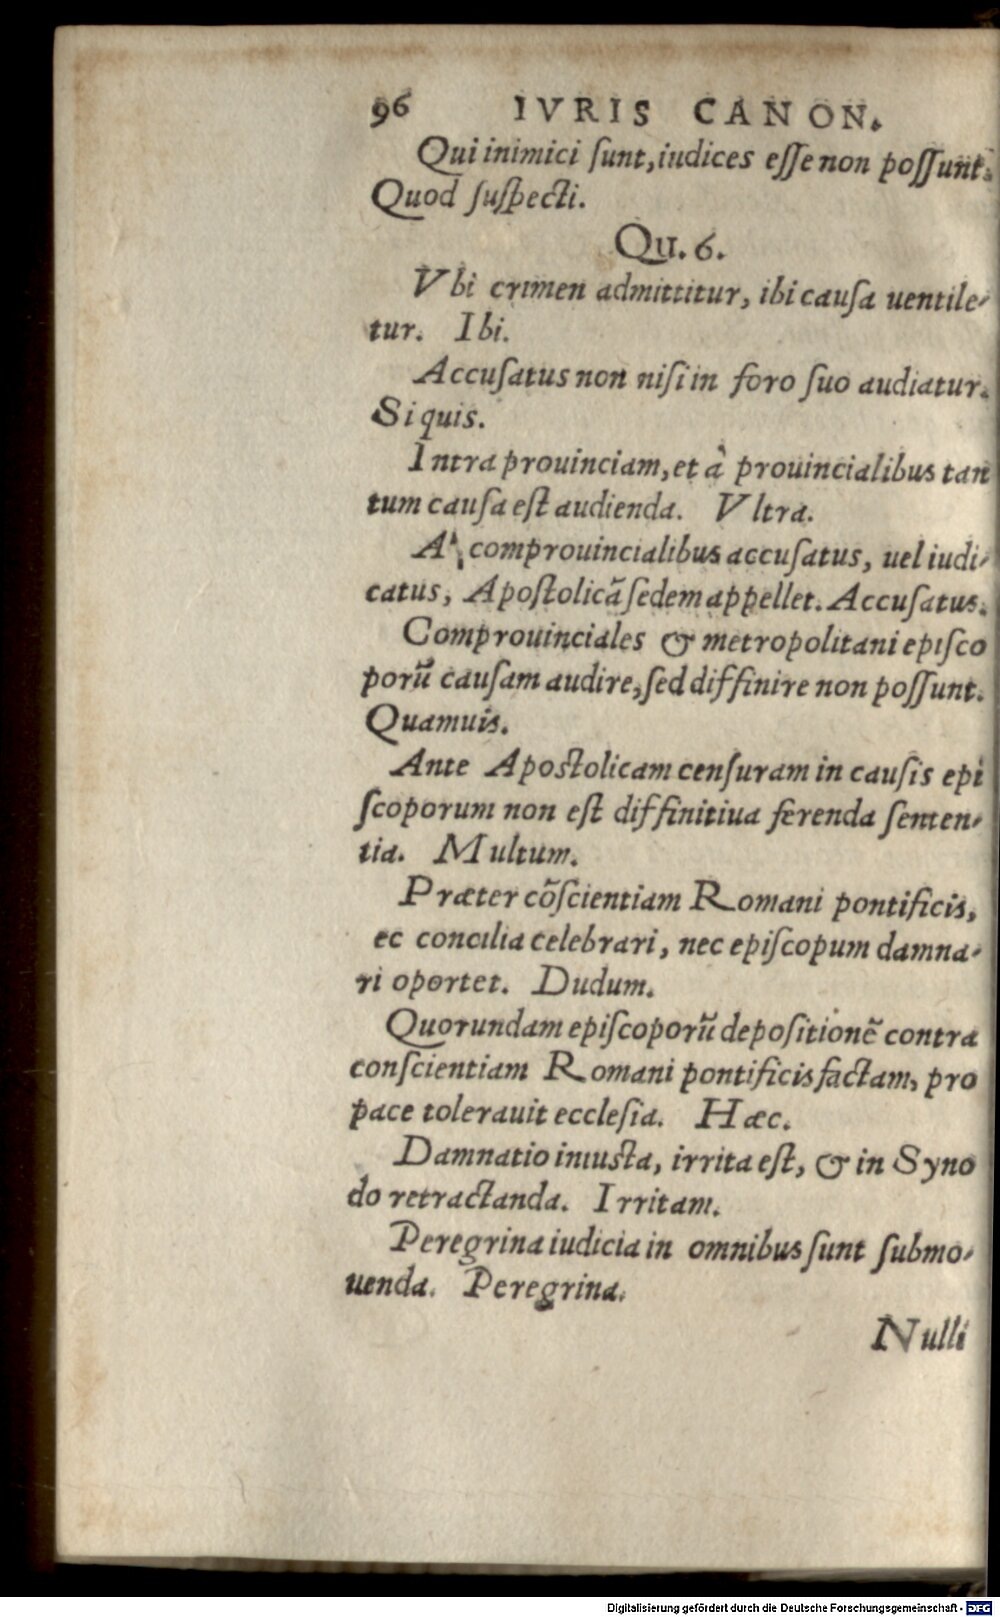 96 IVRIS CANON.
Qui inimici ſunt, iudices eſſe non poſſunt.
Quod ſuſpecti.
Qu. 6.
Vbi crimen admittitur, ibi cauſa uentile-
tur. Ibi.
Accuſatus non niſi in foro ſuo audiatur.
Si quis.
Intra prouinciam, et à prouincialibus tan
tum cauſa eſt audienda. Vltra.
A' comprouincialibus accuſatus, uel iudi-
catus, Apoſtolicã ſedem appellet. Accuſatus.
Comprouinciales & metropolitani epiſco
porũ cauſam audire, ſed diffinire non poſſunt.
Quamuis.
Ante Apoſtolicam cenſuram in cauſis epi
ſcoporum non eſt diffinitiua ferenda ſenten-
tia. Multum.
Præter cõſcientiam Romani pontificis,
ec concilia celebrari, nec epiſcopum damna-
ri oportet. Dudum.
Quorundam epiſcoporũ depoſitionẽ contra
conſcientiam Romani pontificis factam, pro
pace tolerauit eccleſia. Hæc.
Damnatio iniuſta, irrita eſt, & in Syno
do retractanda. Irritam.
Peregrina iudicia in omnibus ſunt ſubmo-
uenda. Peregrina.
Nulli
Digitalisierung gefördert durch die Deutsche Forschungsgemeinschaft - DFG